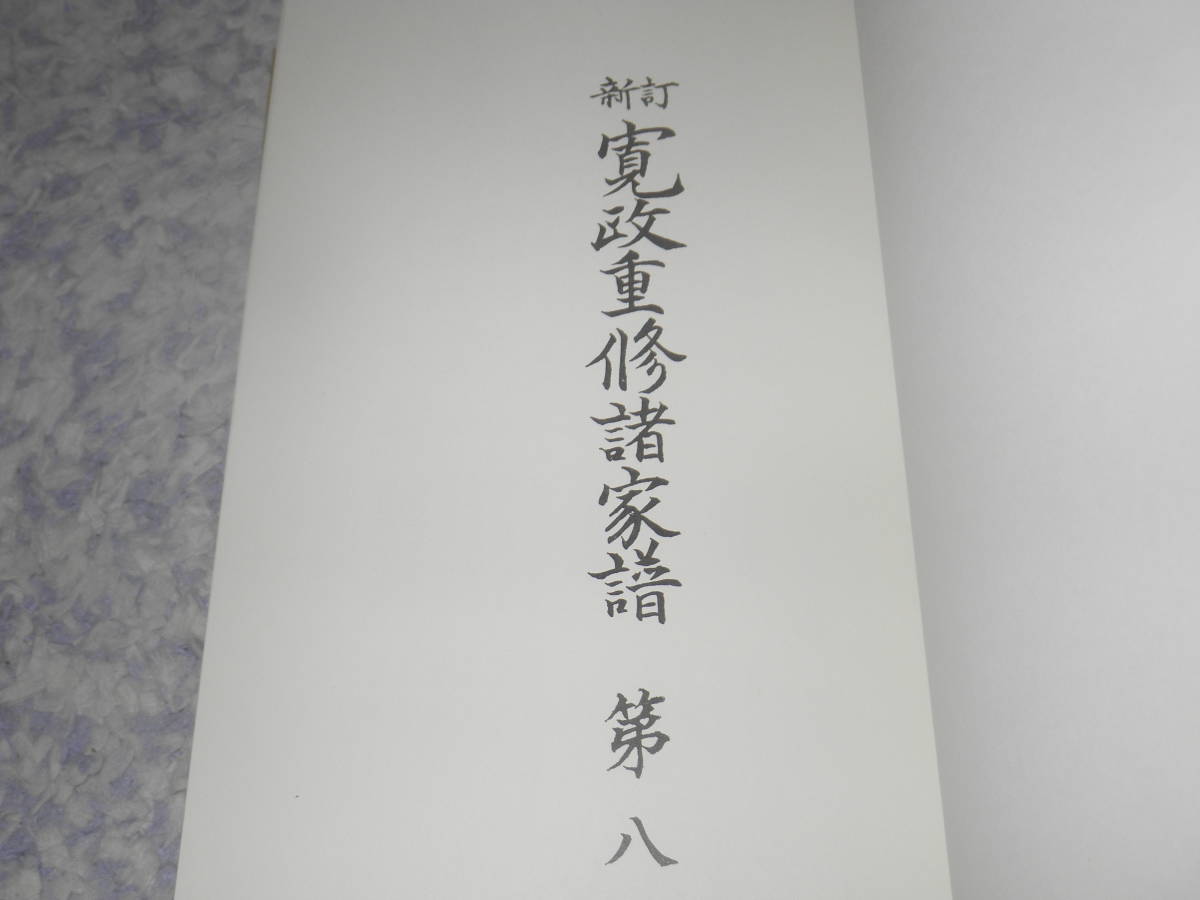 新訂
寛政重修諸家譜 第八